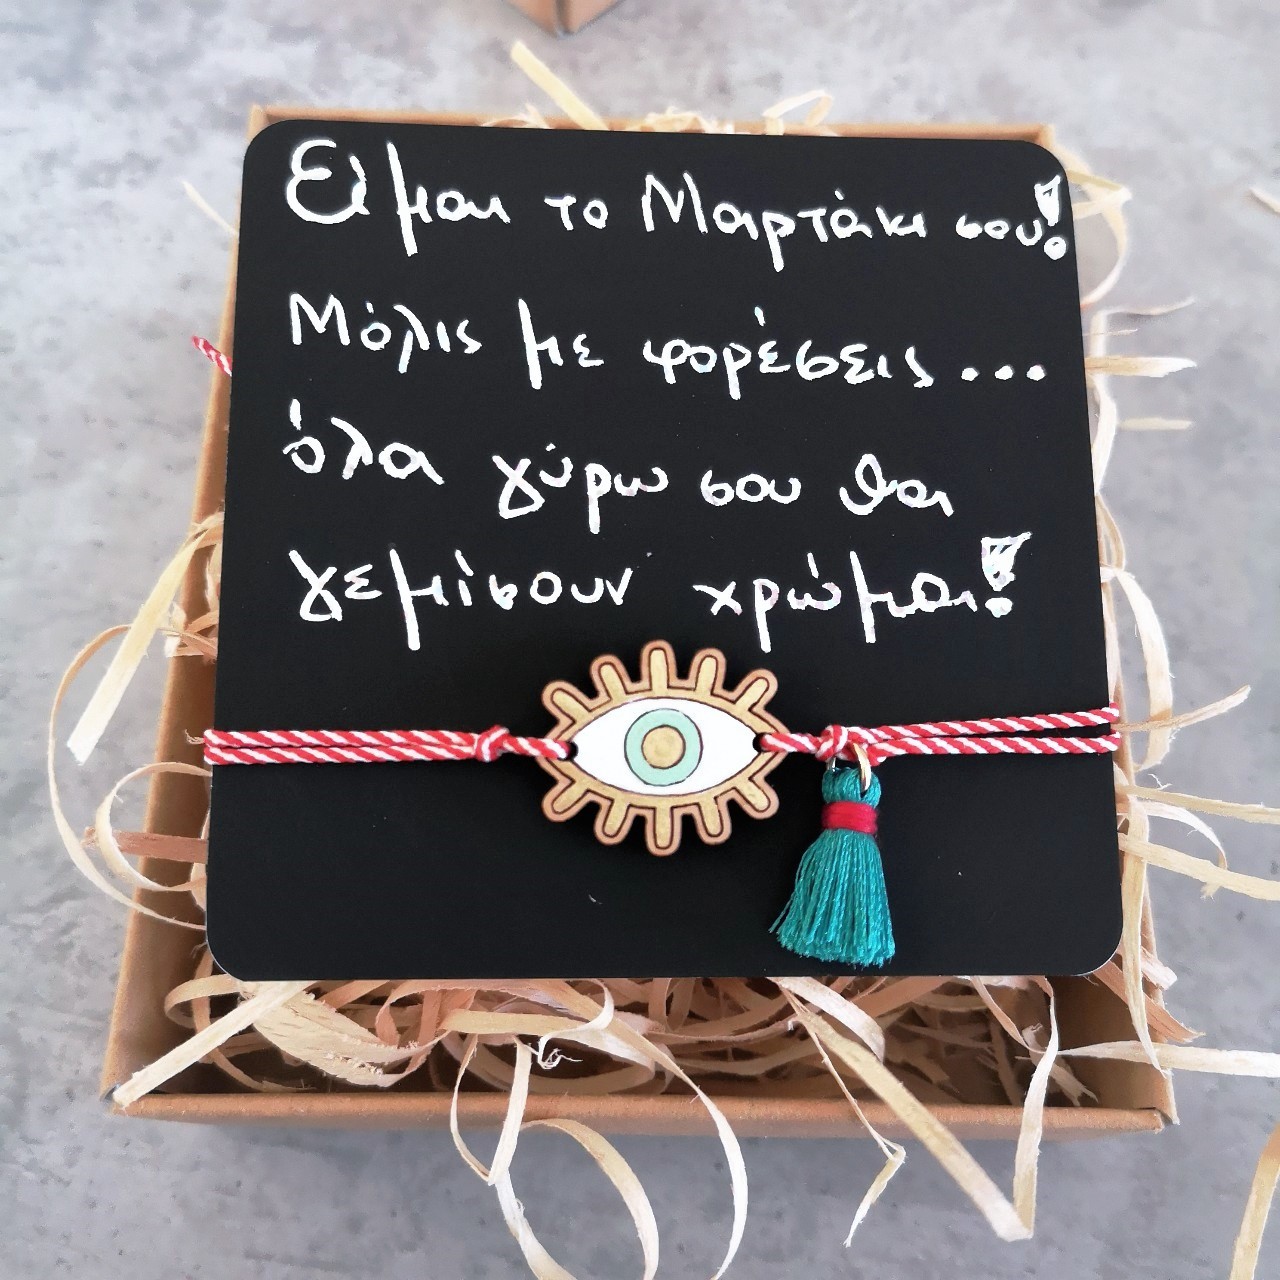 Είμαι το Μαρτάκι σου!
Μόλις με φορέσεις...
όλα γύρω σου θα
γεμίσουν χρώμα!